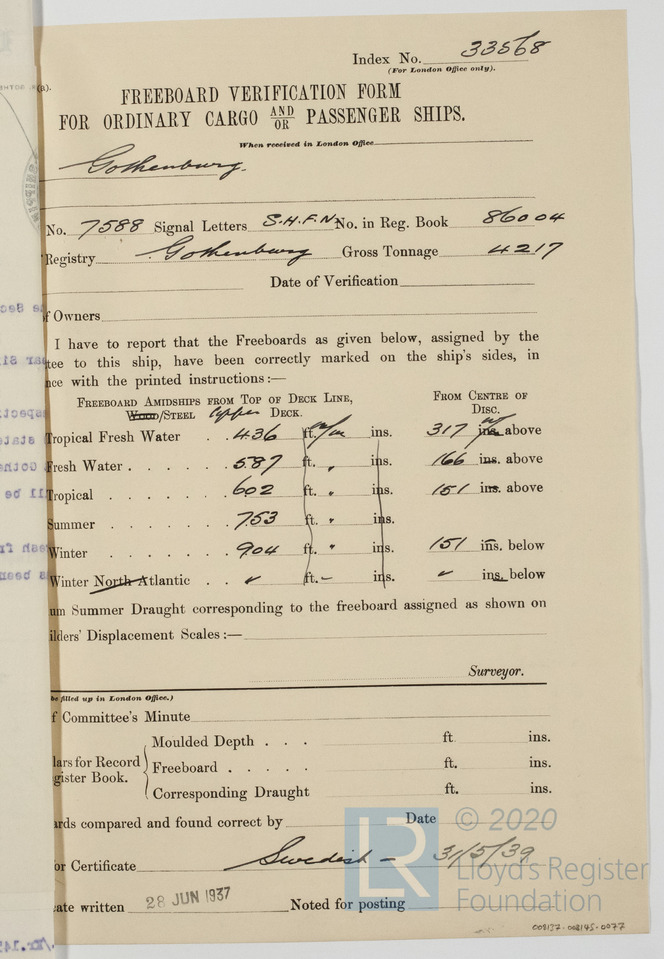 Index No. 33568
(For London Office only).
(a).
FREEBOARD VERIFICATION FORM
FOR ORDINARY CARGO AND/OR PASSENGER SHIPS.
When received in London Office
Gothenburg.
No. 7588 Signal Letters S.H.F.N. No. in Reg. Book 86004
Registry Gothenburg Gross Tonnage 4217
Date of Verification
f Owners
I have to report that the Freeboards as given below, assigned by the
tee to this ship, have been correctly marked on the ship's sides, in
nce with the printed instructions:—
FREEBOARD AMIDSHIPS FROM TOP OF DECK LINE, FROM CENTRE OF
WOOD/STEEL Upper DECK. DISC.
Tropical Fresh Water . . 436 ft. m/m ins. 317 m/m ins. above
Fresh Water . . . . . 587 ft. " ins. 166 ins. above
Tropical . . . . . . 602 ft. " ins. 151 ins. above
Summer . . . . . . 753 ft. " ins.
Winter . . . . . . 904 ft. " ins. 151 ins. below
Winter North Atlantic . . ft. – ins. ins. below
um Summer Draught corresponding to the freeboard assigned as shown on
ilders' Displacement Scales :—
Surveyor.
be filled up in London Office.)
f Committee's Minute
Moulded Depth . . . ft. ins.
lars for Record
gister Book.
Freeboard . . . . . ft. ins.
Corresponding Draught ft. ins.
ards compared and found correct by Date
or Certificate Swedish – 31/5/39
ate written 28 JUN 1937 Noted for posting
LR © 2020
Lloyd's Register
Foundation
008137-008145-0077